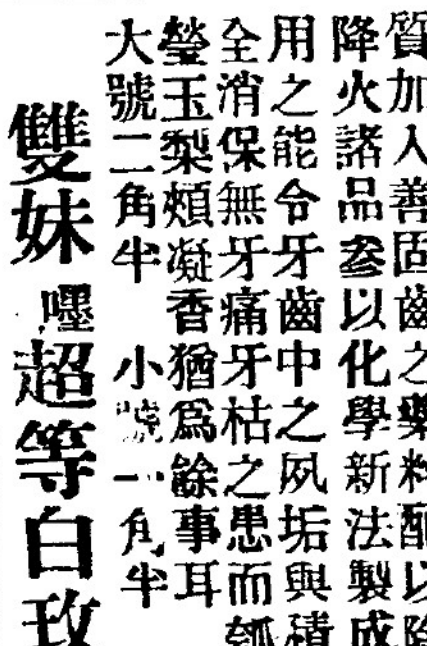 質加入善固齒之藥料配以降
降火諸品參以化學新法製成
用之能令牙齒中之夙垢與積
全消保無牙痛牙枯之患而瓠
瑩玉犁頰凝香猶為餘事耳
大號二角半 小號一角半
雙妹嚜超等白玫